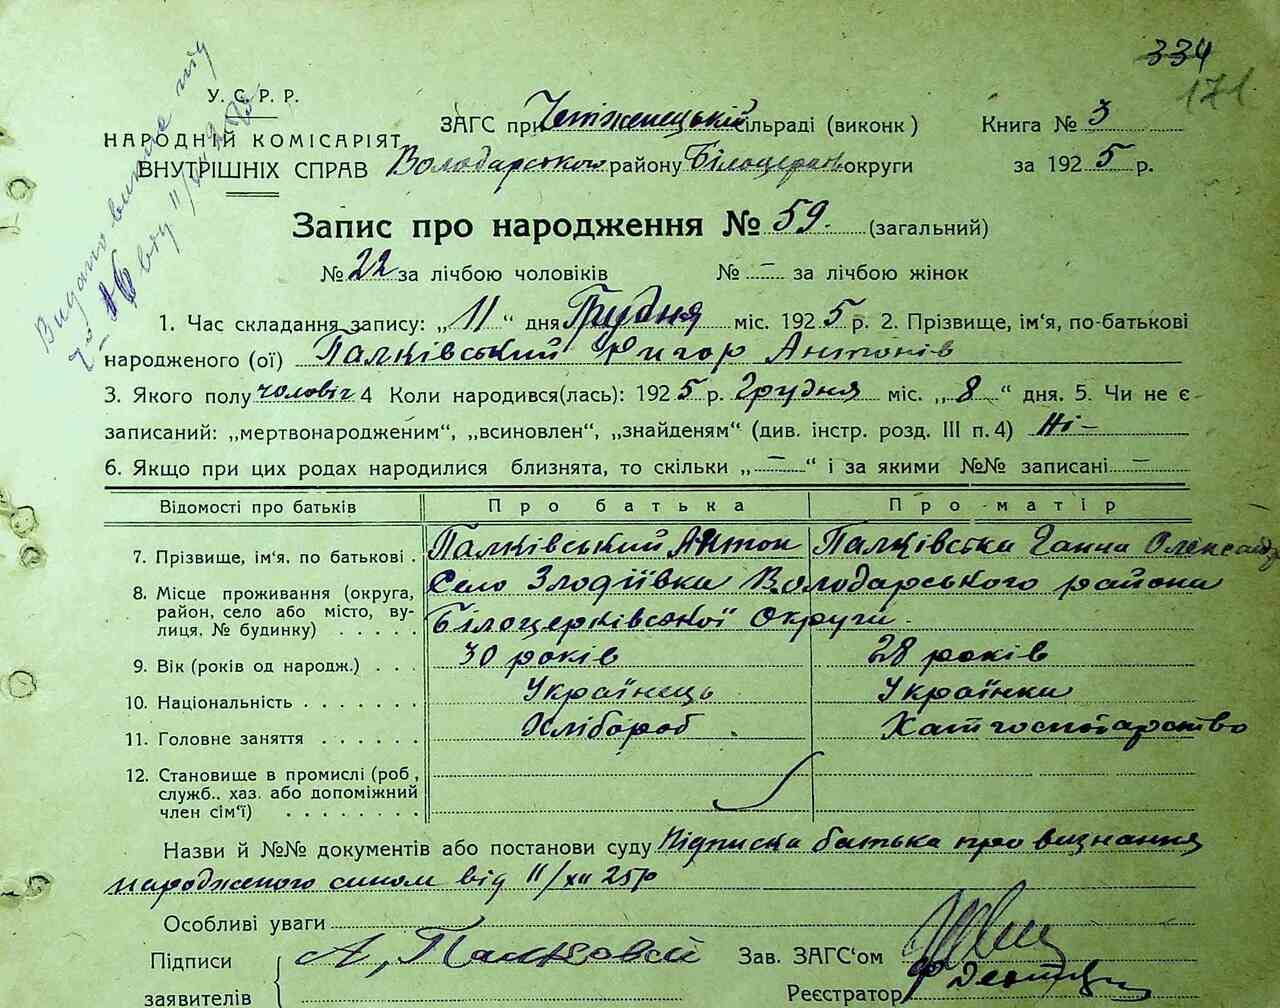 334
171
У. С. Р. Р.
НАРОДНІЙ КОМІСАРІЯТ
ВНУТРІШНІХ СПРАВ
ЗАГС при сільраді (виконк) Книга № 3
Володарського району Білоцерків округи за 1925 р.
Запис про народження № 59. (загальний)
№ 22 за лічбою чоловіків № — за лічбою жінок
1. Час складання запису: „11“ дня Грудня міс. 1925 р. 2. Прізвище, ім'я, по-батькові
народженого (ої) Палківський Григор Антонів
3. Якого полу чоловіч 4 Коли народився(лась): 1925 р. Грудня міс. „8“ дня. 5. Чи не є
записаний: „мертвонародженим“, „всиновлен“, „знайденям“ (див. інстр. розд. III п. 4) Ні —
6. Якщо при цих родах народилися близнята, то скільки „—“ і за якими №№ записані —
Відомості про батьків Про батька Про матір
7. Прізвище, ім'я, по батькові . Палківський Антон Палківська Ганна Олександ
8. Місце проживання (округа, район, село або місто, вулиця, № будинку) . . . . . Село Злодіївка Володарського района
Білоцерківської Округи.
9. Вік (років од народж.) . . . 30 років 28 років
10. Національність . . . . . . . Українець Українка
11. Головне заняття . . . . . . Хлібороб . Хатгосподарство
12. Становище в промислі (роб., служб., хаз. або допоміжний член сім'ї) . . . . . . . .
Назви й №№ документів або постанови суду Підписка батька про визнання
народженого сином від 11/XII 25р
Особливі уваги
Підписи А, Палковскй Зав. ЗАГС'ом
заявителів Реєстратор
Видано